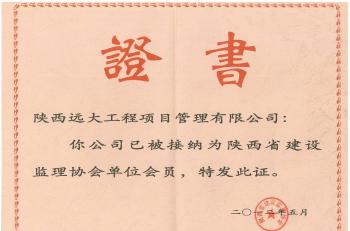 證書
陕西远大工程项目管理有限公司：
你公司已被接纳为陕西省建设
监理协会单位会员，特发此证。
二〇一三年五月